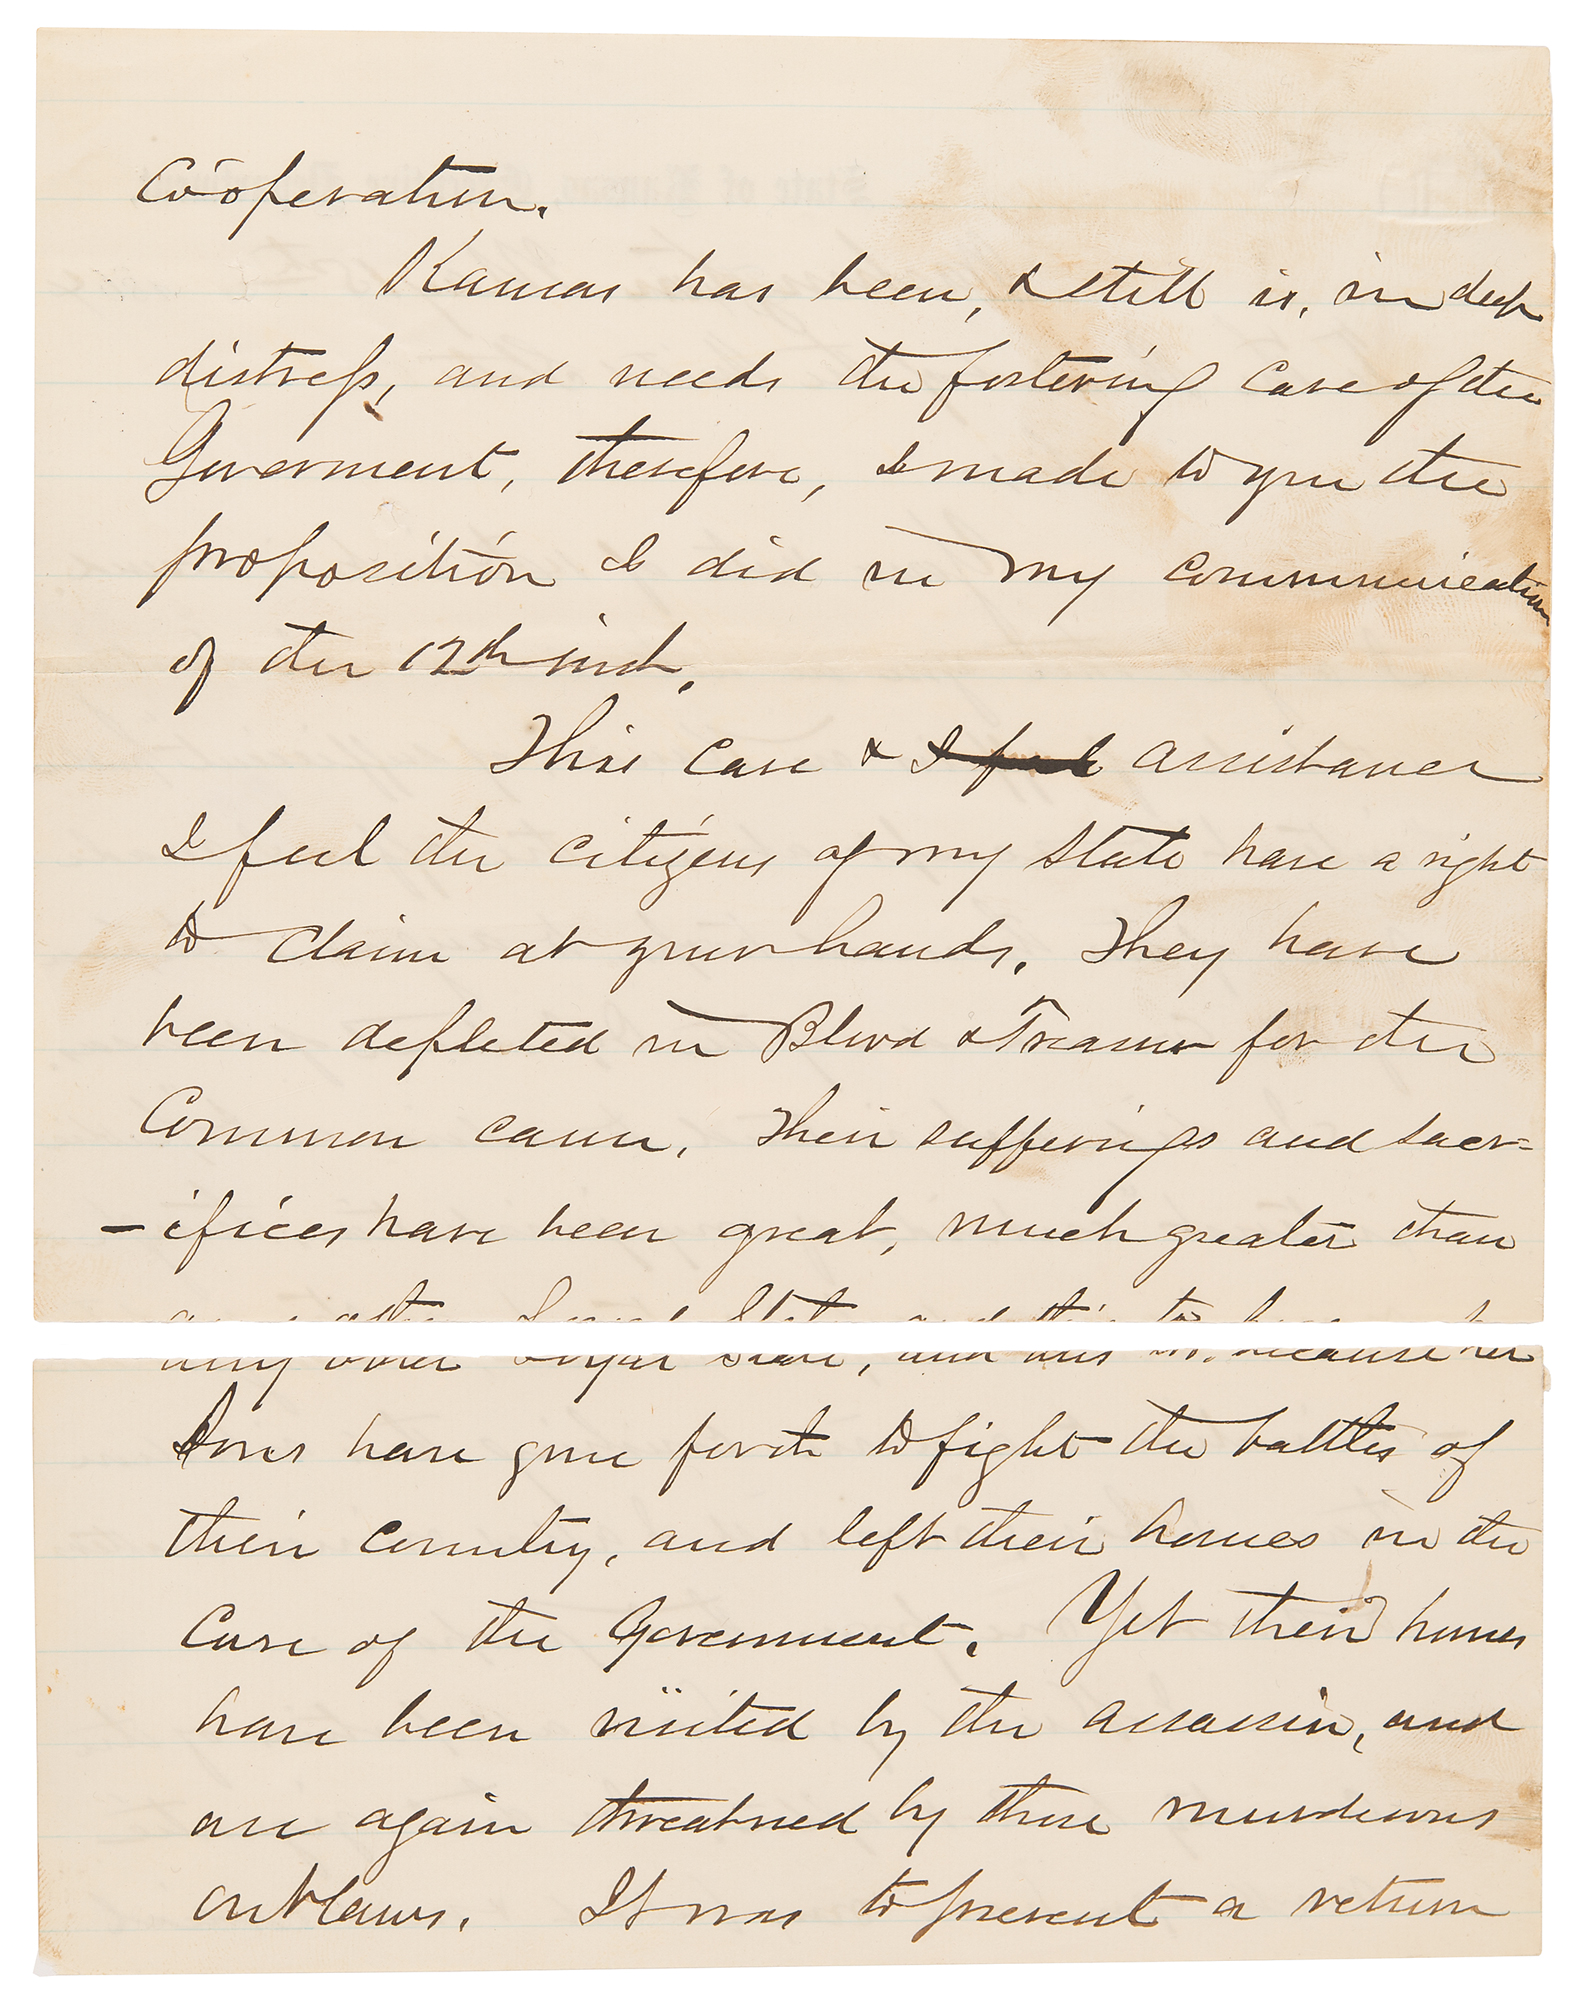 Coöperation.
Kansas has been, & still is, in deep
distress, and needs the fostering care of the
Goverment, therefore, I made to you the
proposition I did in my communication
of the 12th inst.
This care & I feel assistance
I feel the citizens of my State have a right
to claim at your hands. They have
been depleted in Blood & Treasure for the
Common cause. Their sufferings and sacr=
-ifices have been great, much greater than
any other Loyal State, and this too, because her
Sons have gone forth to fight the battles of
their country, and left their homes in the
Care of the Government. Yet their homes
have been visited by the assassin, and
are again threatned by these murderous
outlaws. It was to prevent a return